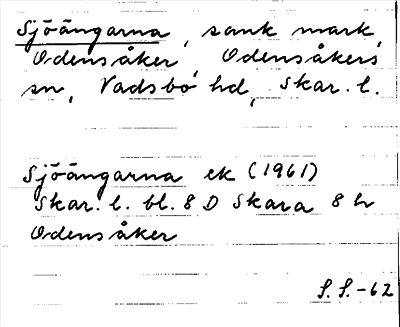 Sjöängarna, sank mark,
Odensåker, Odensåkers
sn, Vadsbo hd, Skar. l.
Sjöängarna ek (1961)
Skar. l. bl. 8 D Skara 8 h
Odensåker
S. S. -62